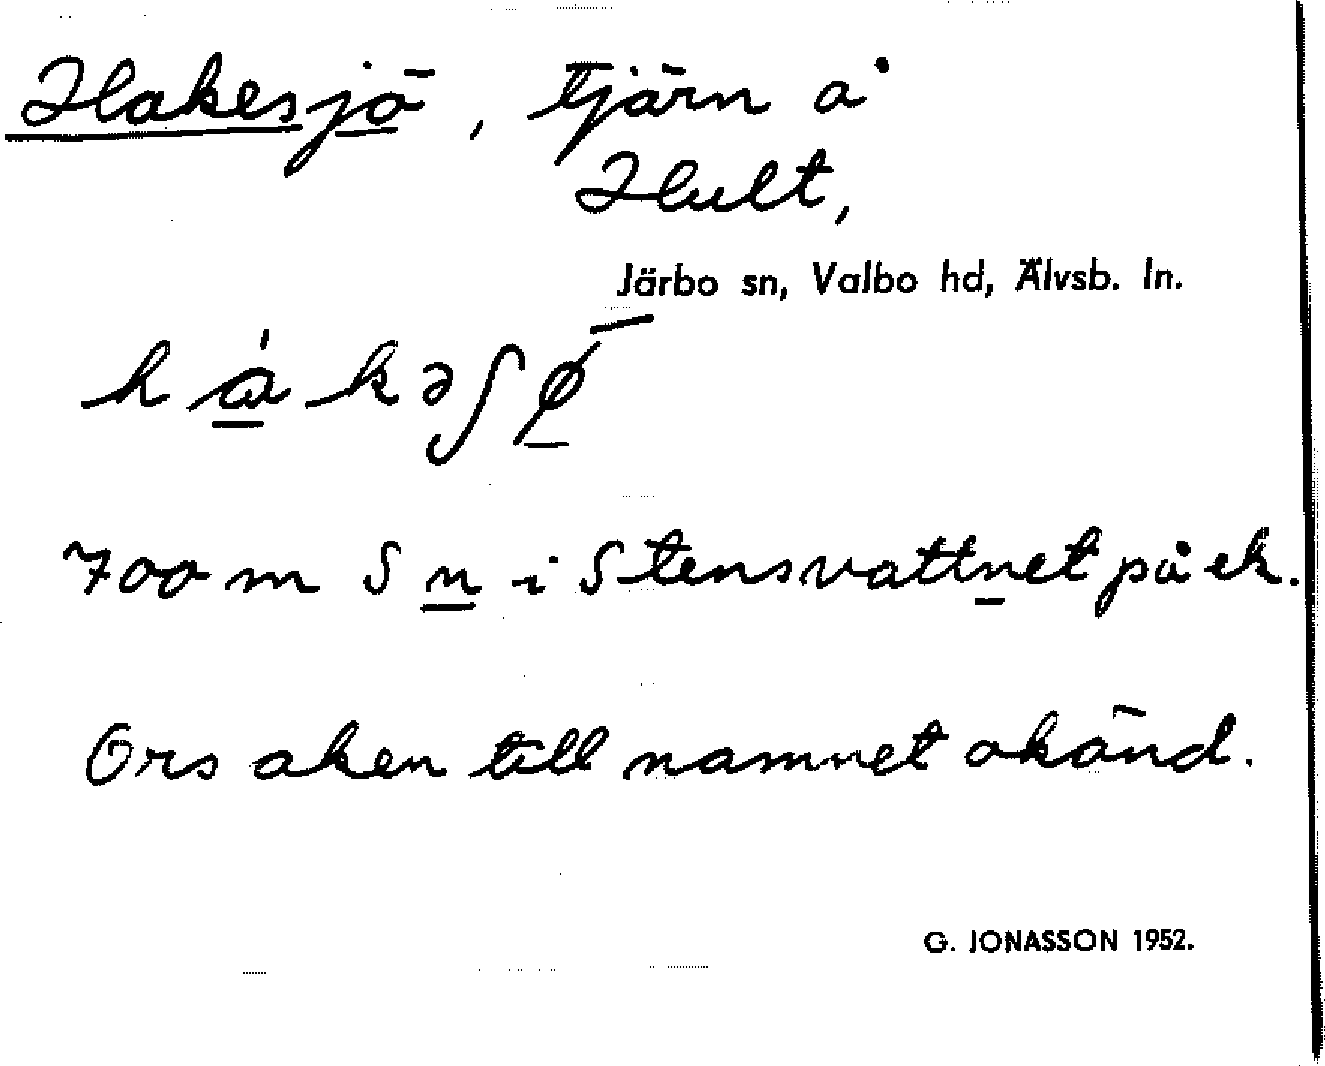 Hakesjö, tjärn å
Hult,
Järbo sn, Valbo hd, Älvsb. ln.
hàkəʃø̄
700 m S n i Stensvattnet på ek.
Orsaken till namnet okänd.
G. JONASSON 1952.